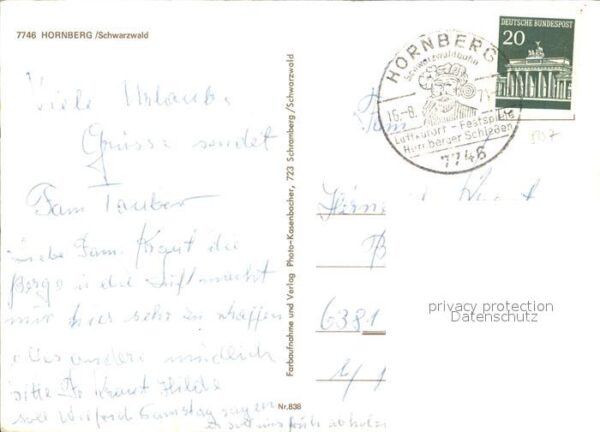 7746 HORNBERG /Schwarzwald
DEUTSCHE BUNDESPOST
20
HORNBERG
Schwarzwaldbahn
15.-8. 71
Luftkurort - Festspiele
Hornberger Schießen
7746
Viele Urlaubs
Grüsse sendet
Fam Tauber
Liebe Fam. Kraut die
Berge u die Luft macht
mir hier sehr zu schaffen
alles andere mündlich
bitte Fr Kraut Hilde
soll Wilfried Samstag sagen
er soll uns früh abholen
Farbaufnahme und Verlag Photo-Kasenbacher, 723 Schramberg/Schwarzwald
Nr. 838
Fam
6381
privacy protection
Datenschutz